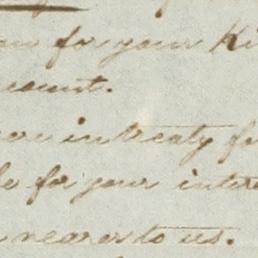 for your Ki
count.
entreaty fo
le for your inter
nearer to us.